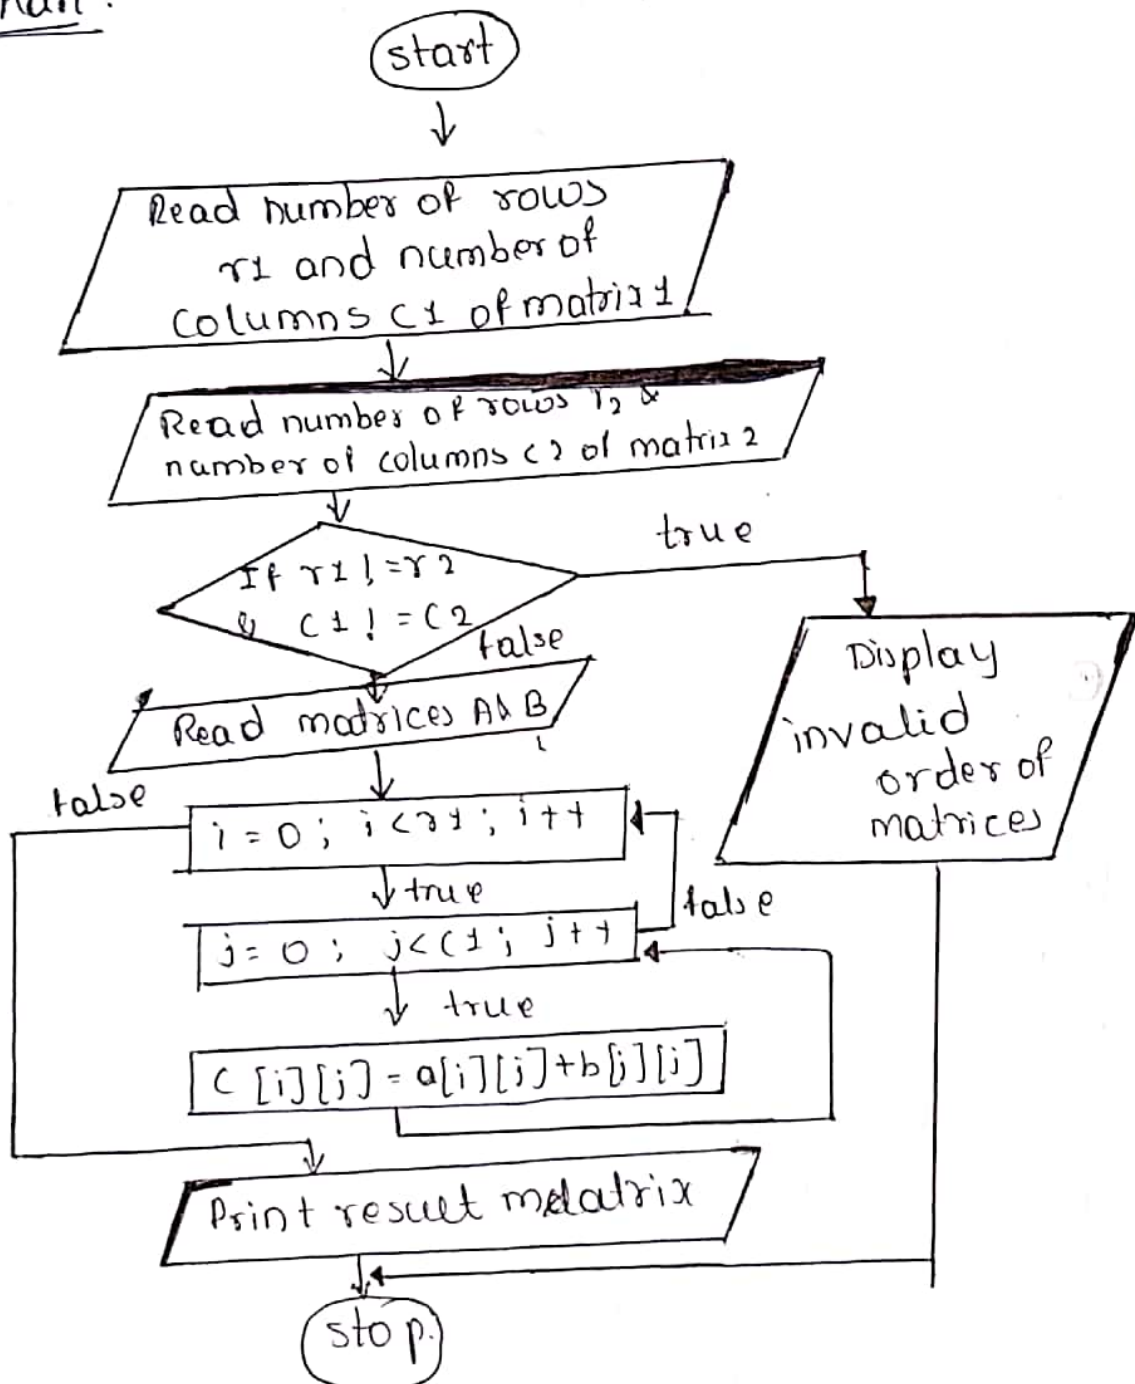 start
Read number of rows
r1 and number of
columns c1 of matrix 1
Read number of rows r2 &
number of columns c2 of matrix 2
true
If r1 != r2
& c1 != c2
false
Read matrices A & B
Display
invalid
order of
matrices
false
i = 0 ; i < r1 ; i++
true
false
j = 0 ; j < c1 ; j++
true
C [i][j] = a[i][j]+b[j][j]
Print result matrix
stop.